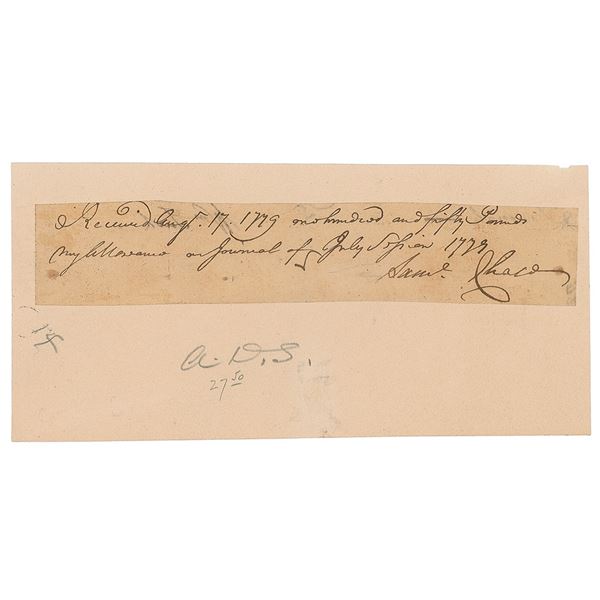 I Received Augt. 17. 1779 one hundred and fifty Pounds
my Allowance on Journal of July Session 1779
Saml. Chase
A. D. S.
27 50